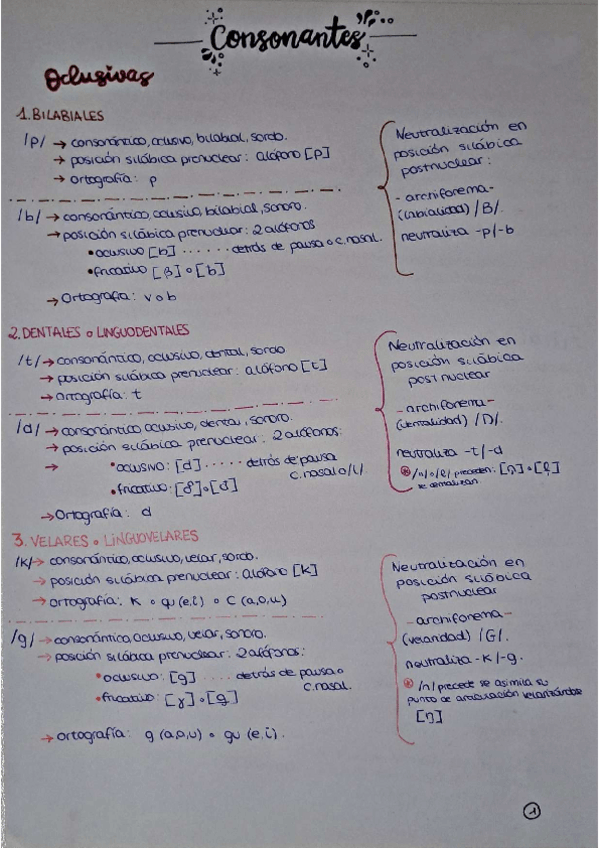 Consonantes
Oclusivas
1. BILABIALES
/p/ → consonántico, oclusivo, bilabial, sordo.
→ posición silábica prenuclear: alófono [p]
→ ortografía: p
/b/ → consonántico, oclusivo, bilabial, sonoro.
→ posición silábica prenuclear: 2 alófonos
• oclusivo [b] ...... detrás de pausa o c.nasal.
• fricativo [β] o [b]
→ Ortografía: v o b
Neutralización en
posición silábica
postnuclear:
- archifonema -
(labialidad) /B/.
neutraliza -p/-b
2. DENTALES o LINGUODENTALES
/t/ → consonántico, oclusivo, dental, sordo
→ posición silábica prenuclear: alófono [t]
→ ortografía: t
/d/ → consonántico oclusivo, dental, sonoro.
→ posición silábica prenuclear: 2 alófonos:
→ • oclusivo: [d] ..... detrás de pausa
c.nasal o /l/.
• fricativo: [ð] o [d]
→ Ortografía: d
Neutralización en
posición silábica
postnuclear
- archifonema -
(dentalidad) /D/.
neutraliza -t/-d
⊛ /n/ o /l/ preceden: [n̪] o [l̪]
se dentalizan.
3. VELARES o LINGUOVELARES
/k/ → consonántico, oclusivo, velar, sordo.
→ posición silábica prenuclear: alófono [k]
→ ortografía: k o qu (e,i) o c (a,o,u)
/g/ → consonántico, oclusivo, velar, sonoro.
→ posición silábica prenuclear: 2 alófonos:
• oclusivo: [g] .... detrás de pausa o
c.nasal.
• fricativo: [ɣ] o [g]
→ ortografía: g (a,o,u) o gu (e,i).
Neutralización en
posición silábica
postnuclear
- archifonema -
(velaridad) /G/.
neutraliza -k/-g.
⊛ /n/ precede se asimila su
punto de articulación velarizándose
[ŋ]
1